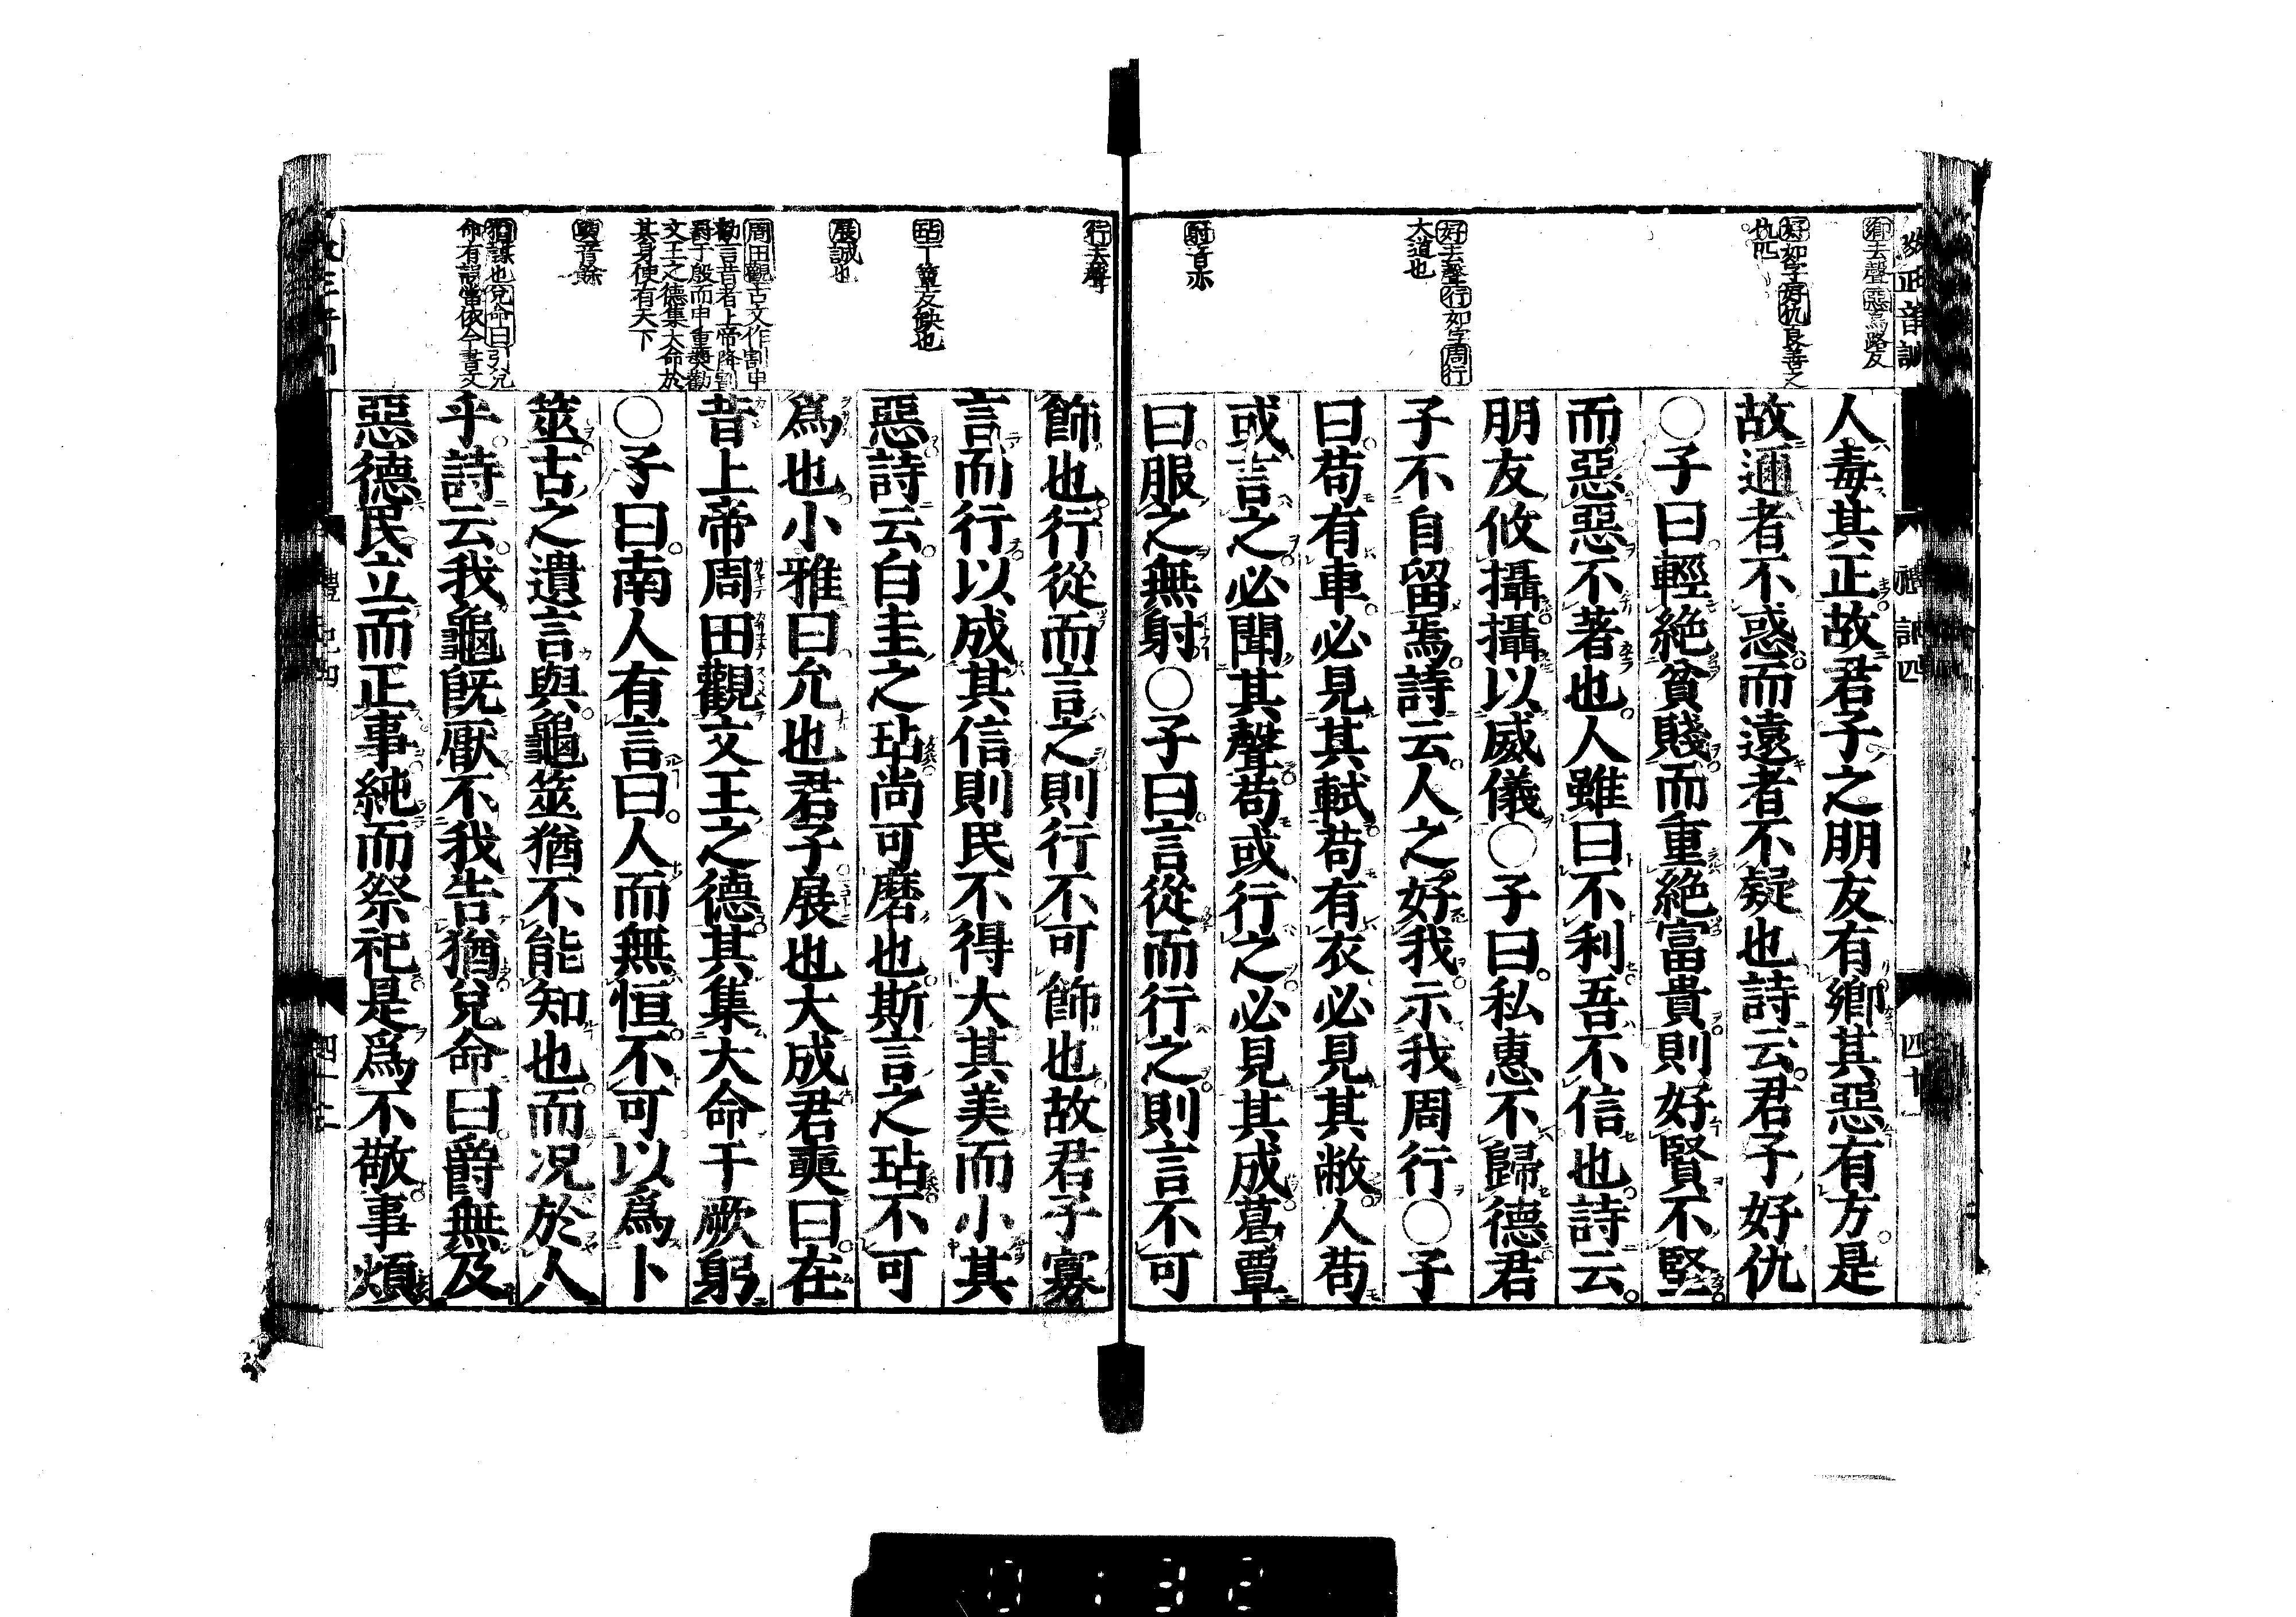 鄉去聲惡烏路反
好如字好仇良善之
仇匹
好去聲行如字周行
大道也
射音亦
人毒其正故君子之朋友有鄉其惡有方是
故邇者不惑而遠者不疑也詩云君子好仇
○子曰輕絕貧賤而重絕富貴則好賢不堅
而惡惡不著也人雖曰不利吾不信也詩云
朋友攸攝攝以威儀○子曰私惠不歸德君
子不自留焉詩云人之好我示我周行○子
曰苟有車必見其軾苟有衣必見其敝人苟
或言之必聞其聲苟或行之必見其成葛覃
曰服之無射○子曰言從而行之則言不可
行去聲
玷丁簟反缺也
展誠也
周田觀古文作割申
勸言昔者上帝降割
于殷而申重奬勸
文王之德集大命於
其身使有天下
音餘
猶謀也兌命曰引兌
命有誤當依今書文
飾也行從而言之則行不可飾也故君子寡
言而行以成其信則民不得大其美而小其
惡詩云白圭之玷尚可磨也斯言之玷不可
爲也小雅曰允也君子展也大成君奭曰在
昔上帝周田觀文王之德其集大命于厥躬
○子曰南人有言曰人而無恒不可以爲卜
筮古之遺言與龜筮猶不能知也而況於人
乎詩云我龜旣厭不我告猶兌命曰爵無及
惡德民立而正事純而祭祀是爲不敬事煩
0132